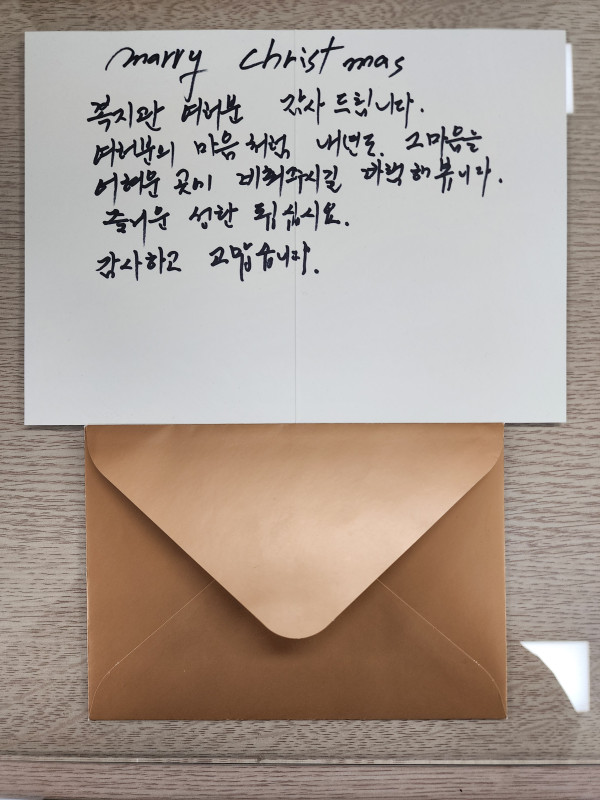 marry christmas
복지관 여러분 감사 드립니다.
여러분의 마음처럼 내년도 그마음을
어려운 곳에 비춰주시길 부탁해봅니다.
즐거운 성탄 되십시요.
감사하고 고맙습니다.